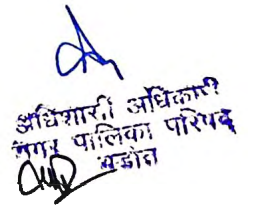 अधिशासी अधिकारी
नगर पालिका परिषद
बड़ौत